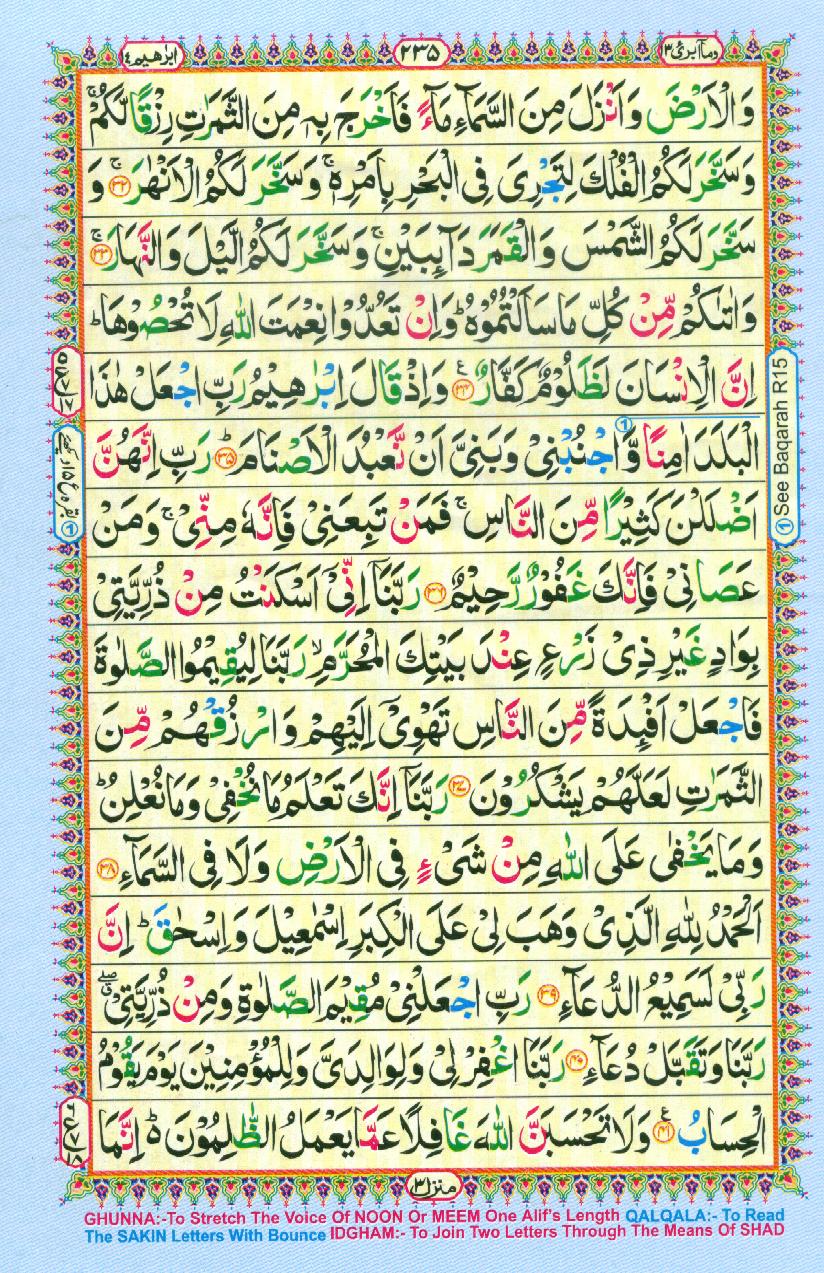 ابرٰهيم ١٤
٢٣٥
ومآ ابرئ ١٣
وَالْاَرْضَ وَاَنْزَلَ مِنَ السَّمَآءِ مَآءً فَاَخْرَجَ بِهٖ مِنَ الثَّمَرٰتِ رِزْقًا لَّكُمْ ۚ
وَسَخَّرَ لَكُمُ الْفُلْكَ لِتَجْرِىَ فِى الْبَحْرِ بِاَمْرِهٖ ۚ وَسَخَّرَ لَكُمُ الْاَنْهٰرَ ۚ ﴿٣٢﴾ وَ
سَخَّرَ لَكُمُ الشَّمْسَ وَالْقَمَرَ دَآئِبَيْنِ ۚ وَسَخَّرَ لَكُمُ الَّيْلَ وَالنَّهَارَ ۚ ﴿٣٣﴾
وَاٰتٰىكُمْ مِّنْ كُلِّ مَا سَاَلْتُمُوْهُ ؕ وَاِنْ تَعُدُّوْا نِعْمَتَ اللّٰهِ لَا تُحْصُوْهَا ؕ
اِنَّ الْاِنْسَانَ لَظَلُوْمٌ كَفَّارٌ ﴿٣٤﴾ ع وَاِذْ قَالَ اِبْرٰهِيْمُ رَبِّ اجْعَلْ هٰذَا
الْبَلَدَ اٰمِنًا وَّاجْنُبْنِىْ وَبَنِىَّ اَنْ نَّعْبُدَ الْاَصْنَامَ ؕ ﴿٣٥﴾ رَبِّ اِنَّهُنَّ
اَضْلَلْنَ كَثِيْرًا مِّنَ النَّاسِ ۚ فَمَنْ تَبِعَنِىْ فَاِنَّهٗ مِنِّىْ ۚ وَمَنْ
عَصَانِىْ فَاِنَّكَ غَفُوْرٌ رَّحِيْمٌ ﴿٣٦﴾ رَبَّنَاۤ اِنِّىْۤ اَسْكَنْتُ مِنْ ذُرِّيَّتِىْ
بِوَادٍ غَيْرِ ذِىْ زَرْعٍ عِنْدَ بَيْتِكَ الْمُحَرَّمِ ۙ رَبَّنَا لِيُقِيْمُوا الصَّلٰوةَ
فَاجْعَلْ اَفْئِدَةً مِّنَ النَّاسِ تَهْوِىْۤ اِلَيْهِمْ وَارْزُقْهُمْ مِّنَ
الثَّمَرٰتِ لَعَلَّهُمْ يَشْكُرُوْنَ ﴿٣٧﴾ رَبَّنَاۤ اِنَّكَ تَعْلَمُ مَا نُخْفِىْ وَمَا نُعْلِنُ ؕ
وَمَا يَخْفٰى عَلَى اللّٰهِ مِنْ شَىْءٍ فِى الْاَرْضِ وَلَا فِى السَّمَآءِ ﴿٣٨﴾
اَلْحَمْدُ لِلّٰهِ الَّذِىْ وَهَبَ لِىْ عَلَى الْكِبَرِ اِسْمٰعِيْلَ وَاِسْحٰقَ ؕ اِنَّ
رَبِّىْ لَسَمِيْعُ الدُّعَآءِ ﴿٣٩﴾ رَبِّ اجْعَلْنِىْ مُقِيْمَ الصَّلٰوةِ وَمِنْ ذُرِّيَّتِىْ ۖ ق
رَبَّنَا وَتَقَبَّلْ دُعَآءِ ﴿٤٠﴾ رَبَّنَا اغْفِرْ لِىْ وَلِوَالِدَىَّ وَلِلْمُؤْمِنِيْنَ يَوْمَ يَقُوْمُ
الْحِسَابُ ﴿٤١﴾ ع وَلَا تَحْسَبَنَّ اللّٰهَ غَافِلًا عَمَّا يَعْمَلُ الظّٰلِمُوْنَ ؕ اِنَّمَا
① See Baqarah R15
منزل ٣
GHUNNA:-To Stretch The Voice Of NOON Or MEEM One Alif's Length QALQALA:- To Read
The SAKIN Letters With Bounce IDGHAM:- To Join Two Letters Through The Means Of SHAD